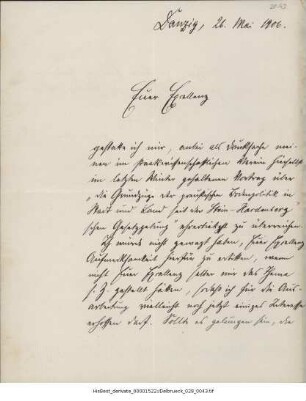 Danzig, 26. Mai 1906.
Euer Exzellenz
gestatte ich mir, anbei als Drucksache mei-
nen im staatswissenschaftlichen Verein hierselbst
im letzten Winter gehaltenen Vortrag über
„die Grundzüge der preußischen Bodenpolitik in
Stadt und Land seit der Stein-Hardenberg'
schen Gesetzgebung" ehrerbietigst zu überreichen.
Ich würde nicht gewagt haben, Euer Exzellenz
Aufmerksamkeit hierfür zu erbitten, wenn
nicht Euer Exzellenz selber mir das Thema
s. Z. gestellt hätten, sodaß ich für die Aus-
arbeitung vielleicht noch jetzt einiges Interesse
erhoffen darf. Sollte es gelungen sein, die